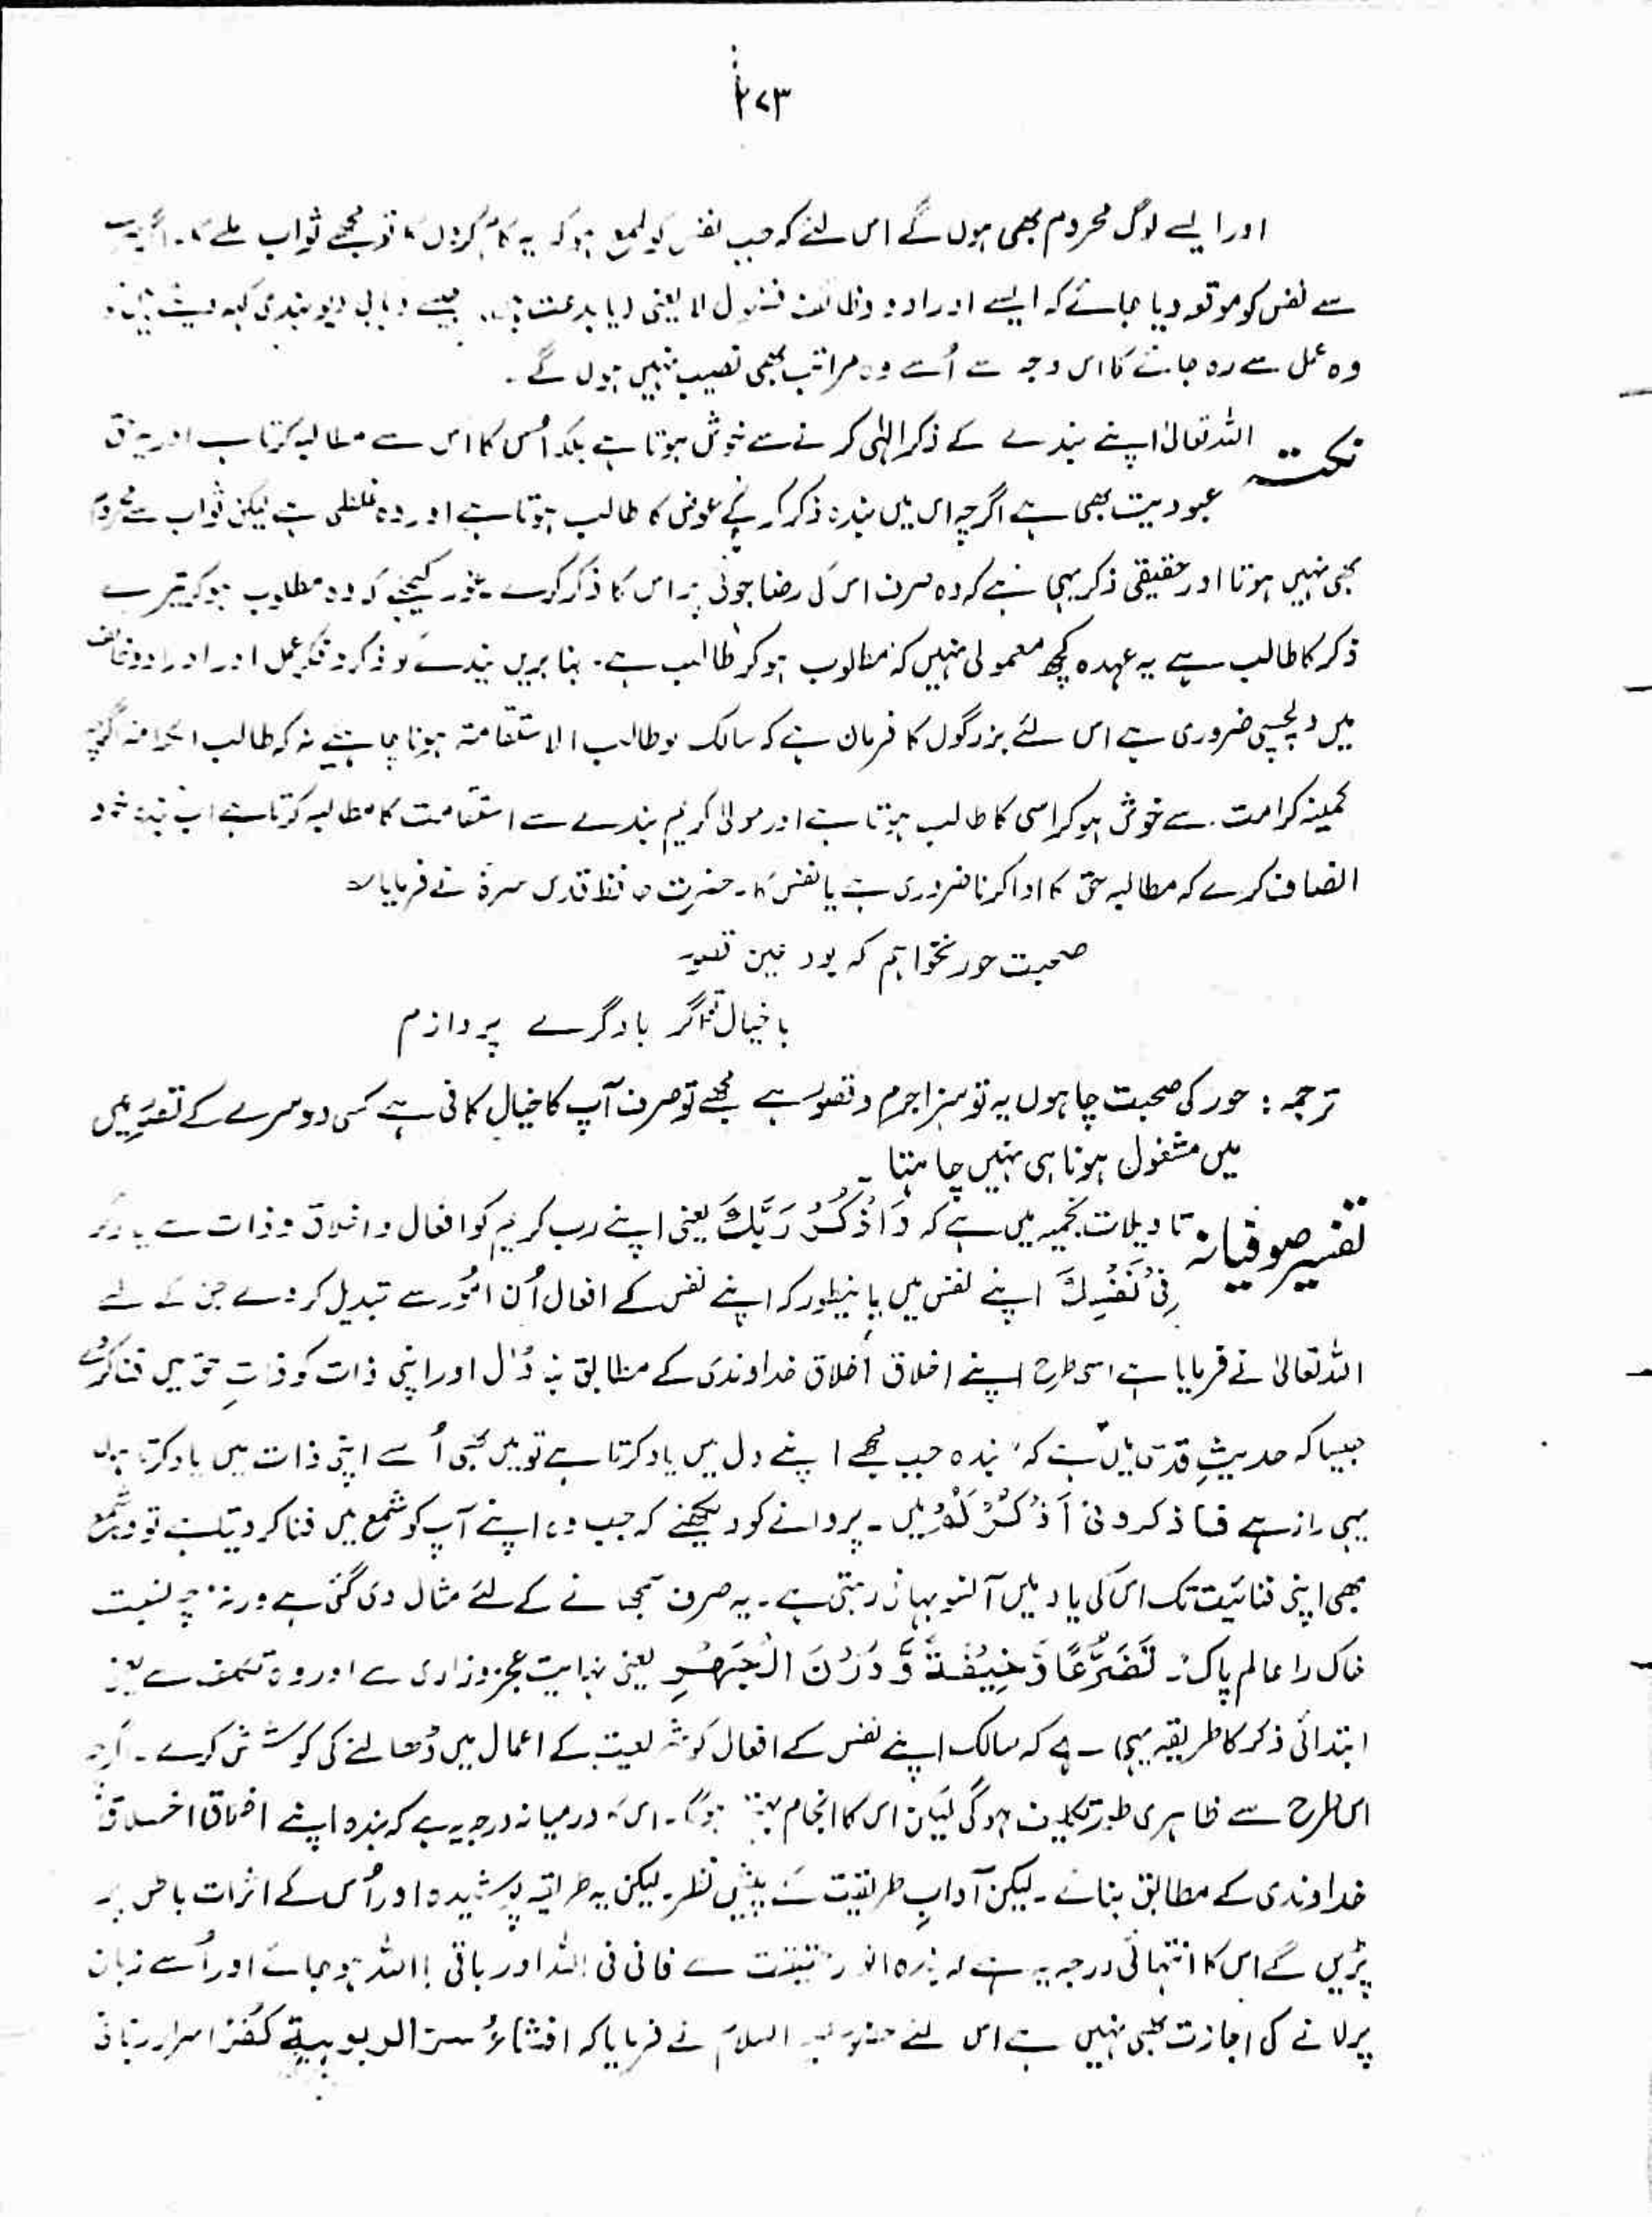 ۲۷۳
اور ایسے لوگ محروم بھی ہوں گے اس لئے کہ جب نفس کو طمع ہو کہ یہ کام کروں گا تو مجھے ثواب ملے گا۔
سے نفس کو موقعہ دیا جائے کہ ایسے اوراد و وظائف فضول لا یعنی یا بدعت ہیں۔ جیسے وہابی دیوبندی کہہ دیتے ہیں تو
وہ عمل سے رہ جائے گا اس وجہ سے اُسے وہ مراتب بھی نصیب نہیں ہوں گے۔
نکتہ اللہ تعالیٰ اپنے بندے کے ذکر الٰہی کرنے سے خوش ہوتا ہے بلکہ اُس کا اس سے مطالبہ کرتا ہے اور یہ حق
عبودیت بھی ہے اگرچہ اس میں بندہ ذکر کر کے عوض کا طالب ہوتا ہے اور وہ غلطی ہے لیکن ثواب سے محروم
بھی نہیں ہوتا اور حقیقی ذکر یہی ہے کہ وہ صرف اس کی رضا جوئی پر اس کا ذکر کرے غور کیجئے کہ وہ مطلوب ہو کر تیرے
ذکر کا طالب ہے یہ عہدہ کچھ معمولی نہیں کہ مطلوب ہو کر طالب ہے۔ بنا بریں بندے کو ذکر و فکر عمل اور اوراد و وظائف
میں دلچسپی ضروری ہے اس لئے بزرگوں کا فرمان ہے کہ سالک کو طالب الاستقامۃ ہونا چاہئے نہ کہ طالب الکرامۃ
کمینہ کرامت سے خوش ہو کر اسی کا طالب ہوتا ہے اور مولیٰ کریم بندے سے استقامت کا مطالبہ کرتا ہے اب بندہ خود
انصاف کرے کہ مطالبہ حق کا ادا کرنا ضروری ہے یا نفس کا۔ حضرت حافظ قدس سرہٗ نے فرمایا
صحبت حور نخواہم کہ بود عین قصور
با خیال تو اگر با دگرے پردازم
ترجمہ : حور کی صحبت چاہوں یہ تو میرا جرم و قصور ہے مجھے تو صرف آپ کا خیال کافی ہے کسی دوسرے کے تصور میں
میں مشغول ہونا ہی نہیں چاہتا۔
تفسیر صوفیانہ تاویلات نجمیہ میں ہے کہ وَاذْكُرْ رَبَّكَ یعنی اپنے رب کریم کو افعال و اخلاق و ذات سے یاد کر
فِیْ نَفْسِكَ اپنے نفس میں بایں طور کہ اپنے نفس کے افعال اُن امُور سے تبدیل کر دے جن کے لئے
اللہ تعالیٰ نے فرمایا ہے اسی طرح اپنے اخلاق اخلاق خداوندی کے مطابق بنا ڈال اور اپنی ذات کو ذاتِ حق میں فنا کر دے
جیسا کہ حدیثِ قدسی میں ہے کہ بندہ جب مجھے اپنے دل میں یاد کرتا ہے تو میں بھی اُسے اپنی ذات میں یاد کرتا ہوں
یہی راز ہے فاذکرونی اَذْكُرْكُمْ میں۔ پروانے کو دیکھئے کہ جب وہ اپنے آپ کو شمع میں فنا کر دیتا ہے تو وہ شمع
بھی اپنی فنائیت تک اس کی یاد میں آنسو بہاتی رہتی ہے۔ یہ صرف سمجھانے کے لئے مثال دی گئی ہے ورنہ چہ نسبت
خاک را عالم پاک۔ تَضَرُّعًا وَّخِیْفَةً وَّ دُوْنَ الْجَهْرِ یعنی نہایت عجز و زاری سے اور وہ تکلف سے یعنی
ابتدائی ذکر کا طریقہ یہی ہے کہ سالک اپنے نفس کے افعال کو شریعت کے اعمال میں ڈھالنے کی کوشش کرے۔ اگرچہ
اس طرح سے ظاہری طور تکلیف ہوگی لیکن اس کا انجام بہتر ہوگا۔ اس کا درمیانہ درجہ یہ ہے کہ بندہ اپنے اخلاق اخلاق
خداوندی کے مطابق بنائے۔ لیکن آدابِ طریقت کے پیش نظر۔ لیکن یہ طریقہ پوشیدہ اور اُس کے اثرات باطن پر
پڑیں گے اس کا انتہائی درجہ یہ ہے کہ بندہ حقیقت سے فانی فی اللہ اور باقی باللہ ہو جائے اور اُسے زبان
پر لانے کی اجازت بھی نہیں ہے اس لئے حضور علیہ السلام نے فرمایا کہ افشاءُ سر الربوبیۃ کفر اسرار ربانی